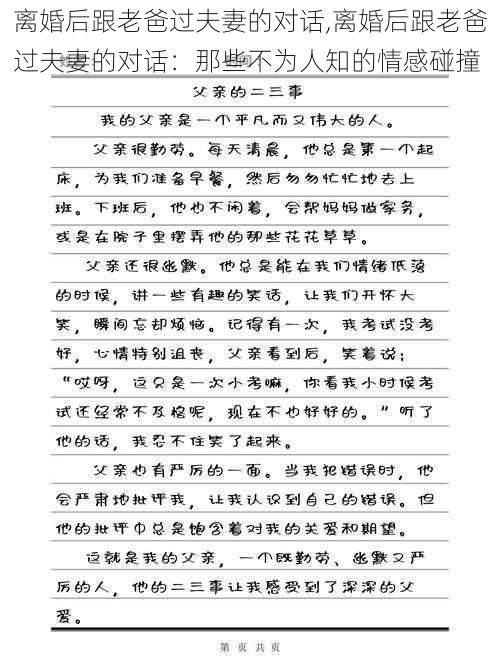 离婚后跟老爸过夫妻的对话,离婚后跟老爸
过夫妻的对话：那些不为人知的情感碰撞
父亲的二三事
我的父亲是一个平凡而又伟大的人。
父亲很勤劳。每天清晨，他总是第一个起
床，为我们准备早餐，然后匆匆忙忙地去上
班。下班后，他也不闲着，会帮妈妈做家务，
或是在院子里摆弄他的那些花花草草。
父亲还很幽默。他总是能在我们情绪低落
的时候，讲一些有趣的笑话，让我们开怀大
笑，瞬间忘却烦恼。记得有一次，我考试没考
好，心情特别沮丧，父亲看到后，笑着说：
“哎呀，这只是一次小考嘛，你看我小时候考
试还经常不及格呢，现在不也好好的。”听了
他的话，我忍不住笑了起来。
父亲也有严厉的一面。当我犯错误时，他
会严肃地批评我，让我认识到自己的错误。但
他的批评中总是饱含着对我的关爱和期望。
这就是我的父亲，一个既勤劳、幽默又严
厉的人，他的二三事让我感受到了深深的父
爱。
第 页 共 页